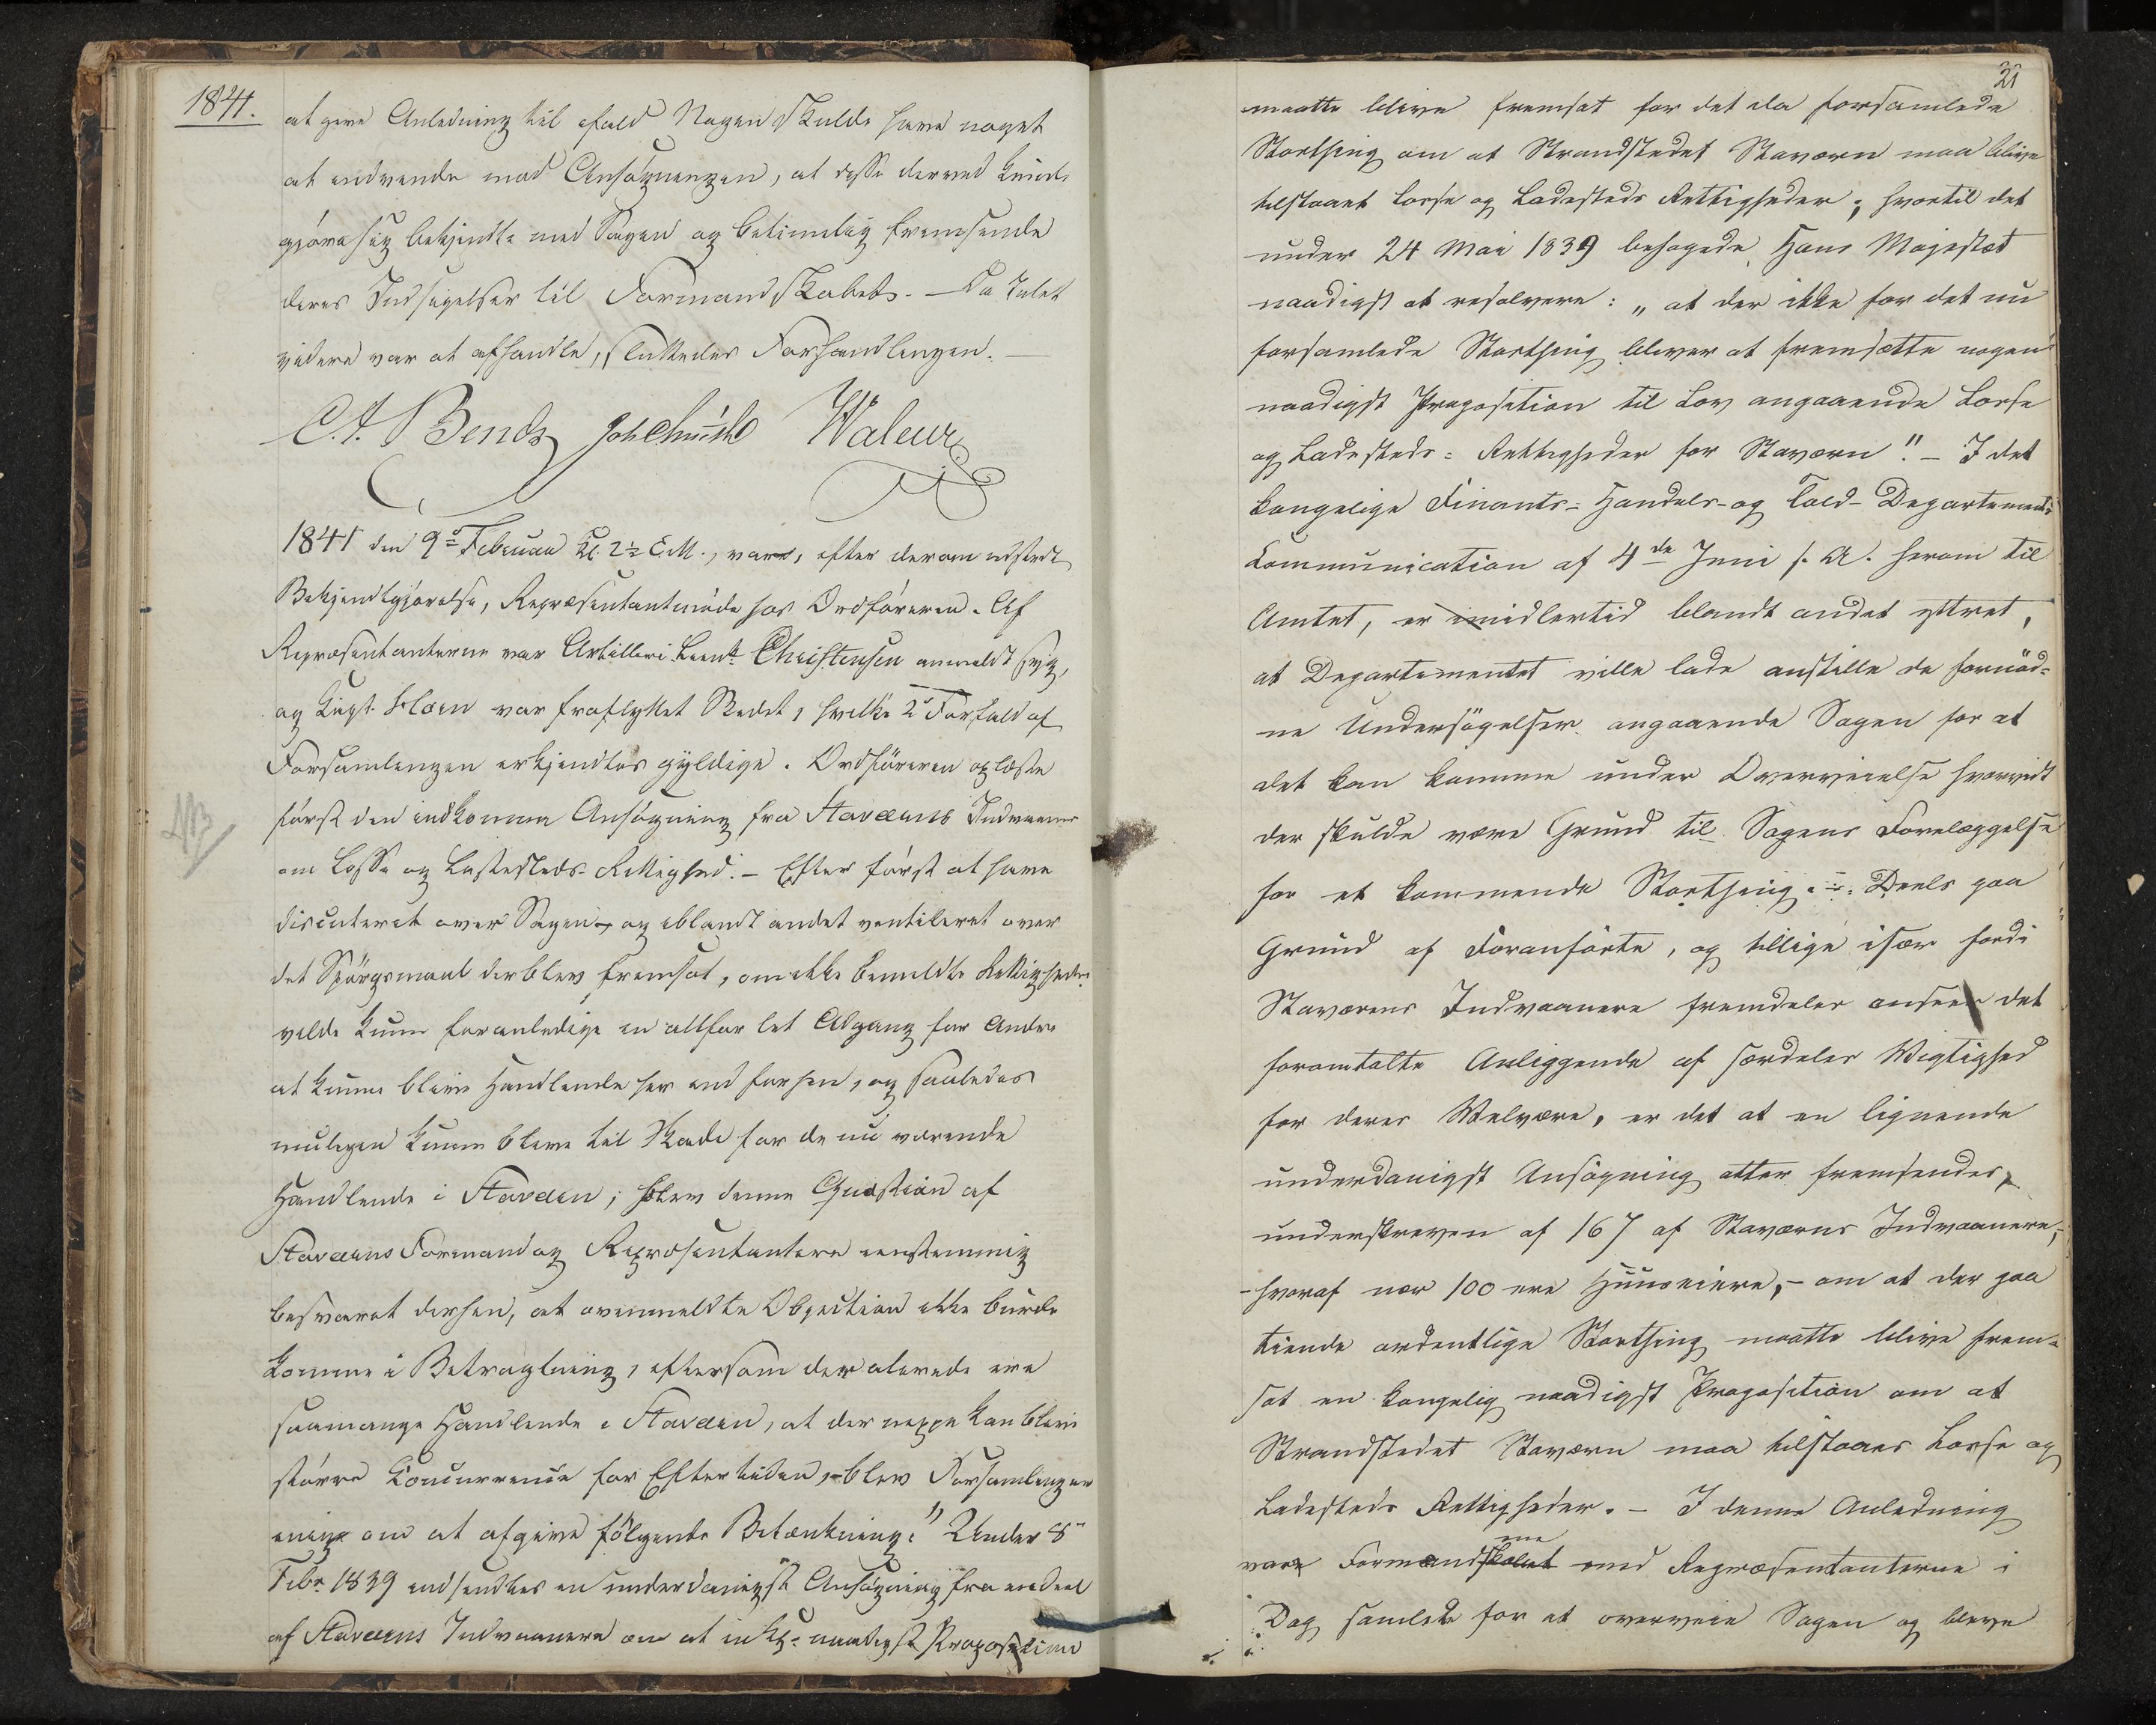 1841.
at give Anledning til ifald Nogen skulde have noget
at indvende mod Ansøgningen, at disse derved kunde
gjøre sig bekjendte med Sagen og betimelig fremsende
deres Indsigelser til Formandskabet. – Da Intet
videre var at afhandle, sluttedes Forhandlingen. –
C. A. Bendz Joh Chünsk Waleur
1841 den 9de Februar Kl. 2½ E.M., vare, efter derom udstedt
Bekjendtgjørelse, Repræsentantmøde hos Ordføreren. Af
Repræsentanterne var Artilleri Lieutn: Christensen anmeldt syg,
og Kapt. Floen var fraflyttet Stedet, hvilke 2de Forfald af
Forsamlingen erkjendtes gyldige. Ordføreren oplæste
først den indkomne Ansøgning fra Staværns Indvaanere
om Losse og Ladesteds-Rettighed. – Efter først at have
discuteret over Sagen, og iblandt andet ventileret over
det Spørgsmaal der blev fremsat, om ikke bemeldte Rettigheder
vilde kunne foranledige en altfor let Adgang for Andre
at kunne blive Handlende her end forhen, og saaledes
muligen kunne blive til Skade for de nu værende
Handlende i Stavern; blev denne Qvæstion af
Staværns Formænd og Repræsentantere eenstemmig
besvaret derhen, at ovenmeldte Objection ikke burde
komme i Betragtning, eftersom der alerede ere
saamange Handlende i Stavern, at der neppe kan blive
større Concurrence for Eftertiden, – blev Forsamlingen
enig om at afgive følgende Betænkning: "Under 8de
Febr. 1839 indsendtes en underdanigst Ansøgning fra en deel
af Staværns Indvaanere om at en Kgl: naadigst Proposition
21
maatte blive fremsat for det da forsamlede
Storthing om at Strandstedet Staværn maa blive
tilstaaet Losse og Ladesteds Rettigheder; hvortil det
under 24 Mai 1839 behagede Hans Majestæt
naadigst at resolvere: „at der ikke for det nu
forsamlede Storthing bliver at fremsætte nogen
naadigst Proposition til Lov angaaende Losse
og Ladesteds-Rettigheder for Staværn". – I det
Kongelige Finants- Handels- og Told-Departements
Communication af 4de Juni s. A. herom til
Amtet, er imidlertid blandt andet yttret,
at Departementet ville lade anstille de fornød-
ne Undersøgelser angaaende Sagen for at
det kan komme under Overveielse hvorvidt
der skulde være Grund til Sagens Forelæggelse
for et kommende Storthing. – Deels paa
Grund af Foranførte, og tillige især fordi
Staværns Indvaanere fremdeles anseer det
foromtalte Anliggende af særdeles Vigtighed
for deres Velvære, er det at en lignende
underdanigst Ansøgning atter fremsendes,
underskreven af 167 af Staværns Indvaanere,
– hvoraf nær 100 ere Huuseiere, – om at der paa
tiende ordentlige Storthing maatte blive frem-
sat en kongelig naadigst Proposition om at
Strandstedet Staværn maa tilstaaes Losse og
Ladesteds Rettigheder. – I denne Anledning
vare Formandskabet ene med Repræsentanterne i
Dag samlede for at overveie Sagen og bleve